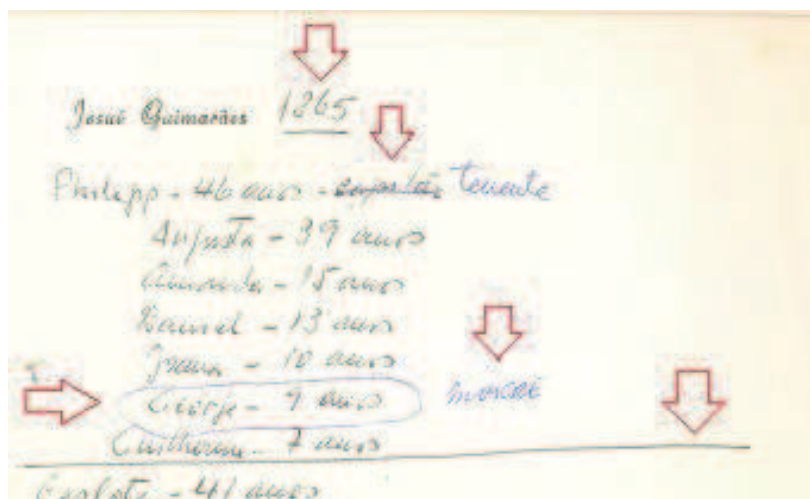 Josué Guimarães 1865
Philipp - 46 anos - capitão tenente
Augusta - 39 anos
Amanda - 15 anos
Daniel - 13 anos
Joana - 10 anos
George - 9 anos
Guilherme - 7 anos
Carlota - 41 anos